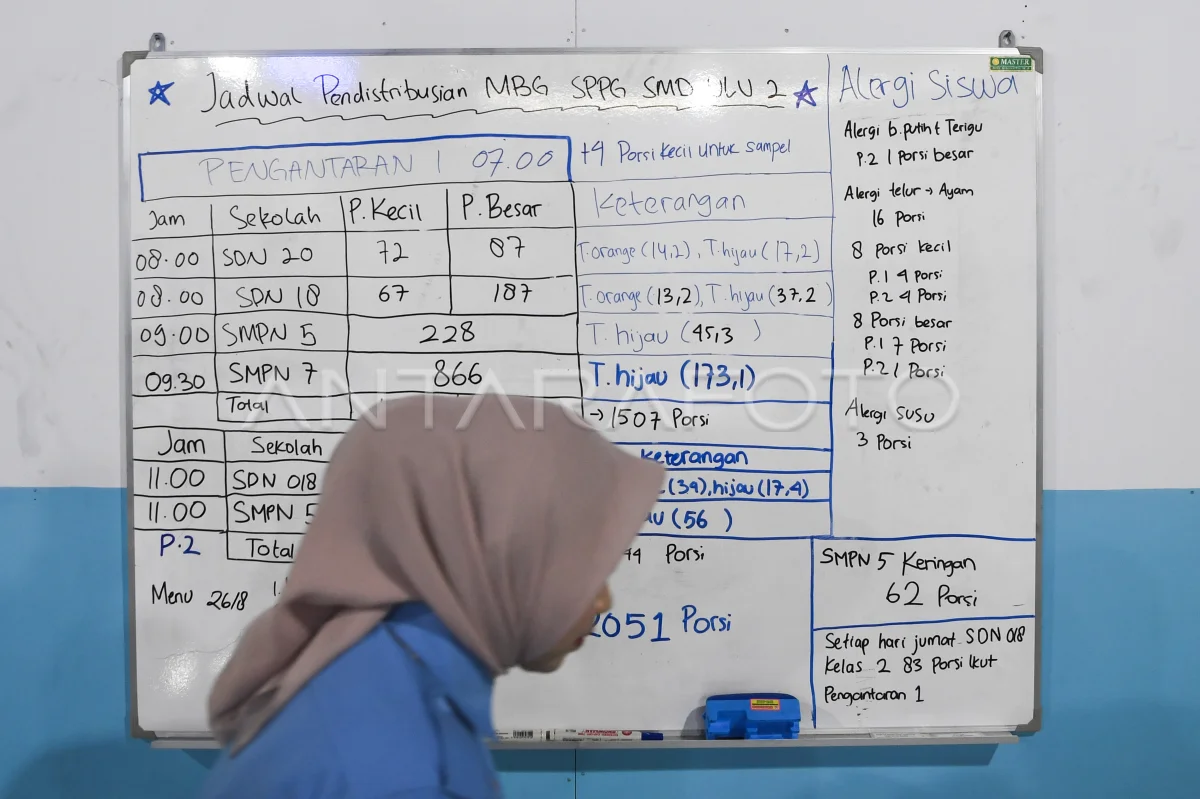 Jadwal Pendistribusian MBG SPPG SMD ULU 2
PENGANTARAN 1 07.00
+4 Porsi Kecil untuk sampel
Jam Sekolah P.Kecil P.Besar Keterangan
08.00 SDN 20 72 87 T.orange (14,2), T.hijau (17,2)
08.00 SDN 18 67 187 T.orange (13,2), T.hijau (37,2)
09.00 SMPN 5 228 T. hijau (45,3)
09.30 SMPN 7 866 T.hijau (173,1)
Total → 1507 Porsi
Jam Sekolah Keterangan
11.00 SDN 018 (39), hijau (17,4)
11.00 SMPN 5 (56)
P.2 Total 44 Porsi
Menu 26/8
2051 Porsi
Alergi Siswa
Alergi b.putih & Terigu
P.2 1 Porsi besar
Alergi telur → Ayam
16 Porsi
8 Porsi kecil
P.1 4 Porsi
P.2 4 Porsi
8 Porsi besar
P.1 7 Porsi
P.2 1 Porsi
Alergi susu
3 Porsi
SMPN 5 Keringan
62 Porsi
Setiap hari jumat SDN 018
Kelas 2 83 Porsi Ikut
Pengantaran 1
MASTER
ANTARAFOTO